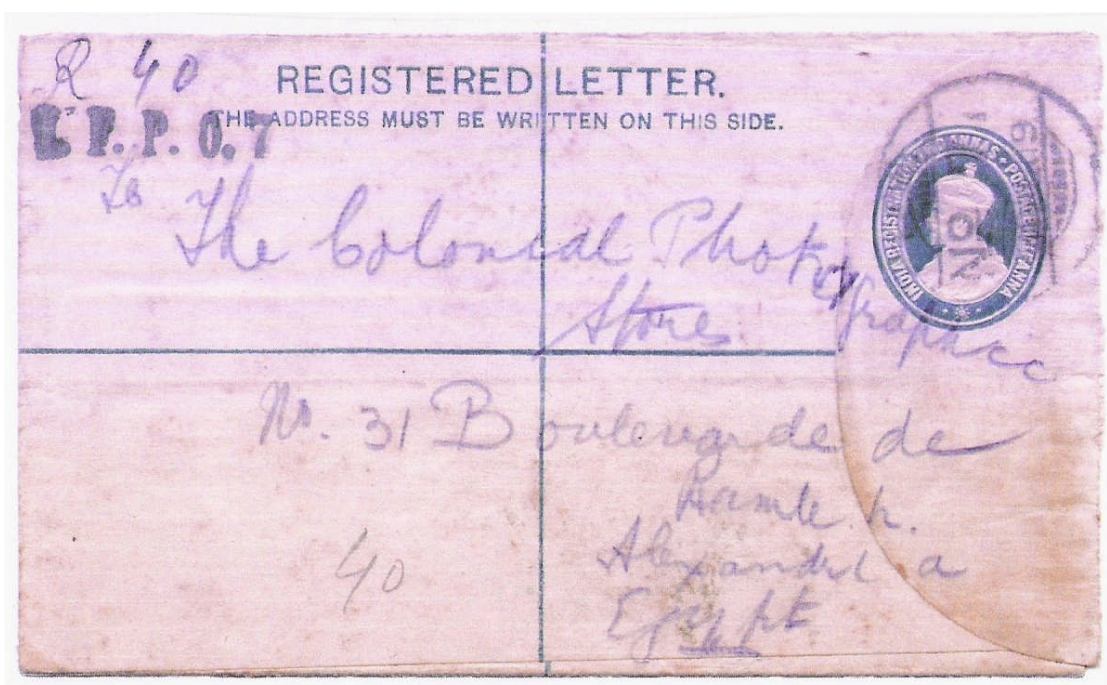 R 40
REGISTERED LETTER.
THE ADDRESS MUST BE WRITTEN ON THIS SIDE.
E. P. P. O. 7
To The Colonial Photographic
Stores
No. 31 Boulevarde de
Ramleh.
Alexandria
Egypt
40
INDIA REGISTRATION TWO ANNAS • POSTAGE HALF ANNA